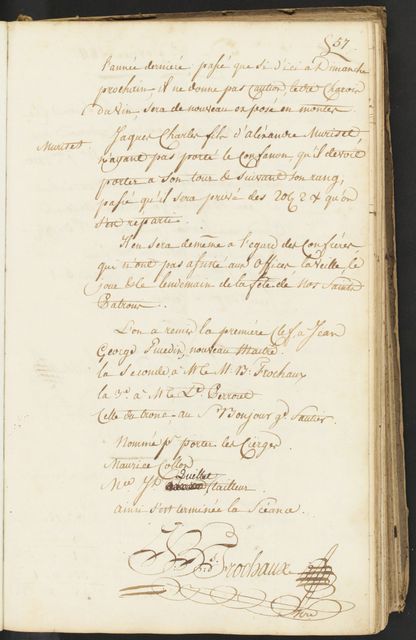 57
l'année derniére passé que si d'ici à Dimanche
prochain il ne donne pas caution le dit
du vin, sera de nouveau exposé en montes.
Muriset. Jaques Charles fils d'alexandre Muriset
n'ayant pas porté le Confanon, qu'il devoit
porter a Son tour & Suivant Son rang,
passé qu'il sera privé des & qu'on
S'en repartit.
Il en Sera de même à l'egard des Confréres
qui n'ont pas assisté aux Offices la veille, le
jour & le lendemain de la fête de Nos Saints
Patrons.
L'on a remis la premiére Clef, à Jean
George nouveau Maitre.
la Seconde à Mr le M. B. Frochaux
la 3e à Mr le Perroset
Celle du tronc, au Sr Bonjour gd Sautier.
Nommé pr porter les Cierges
Maurice
Quellet tailleur.
ainsi s'est terminée la Séance.
Frochaux